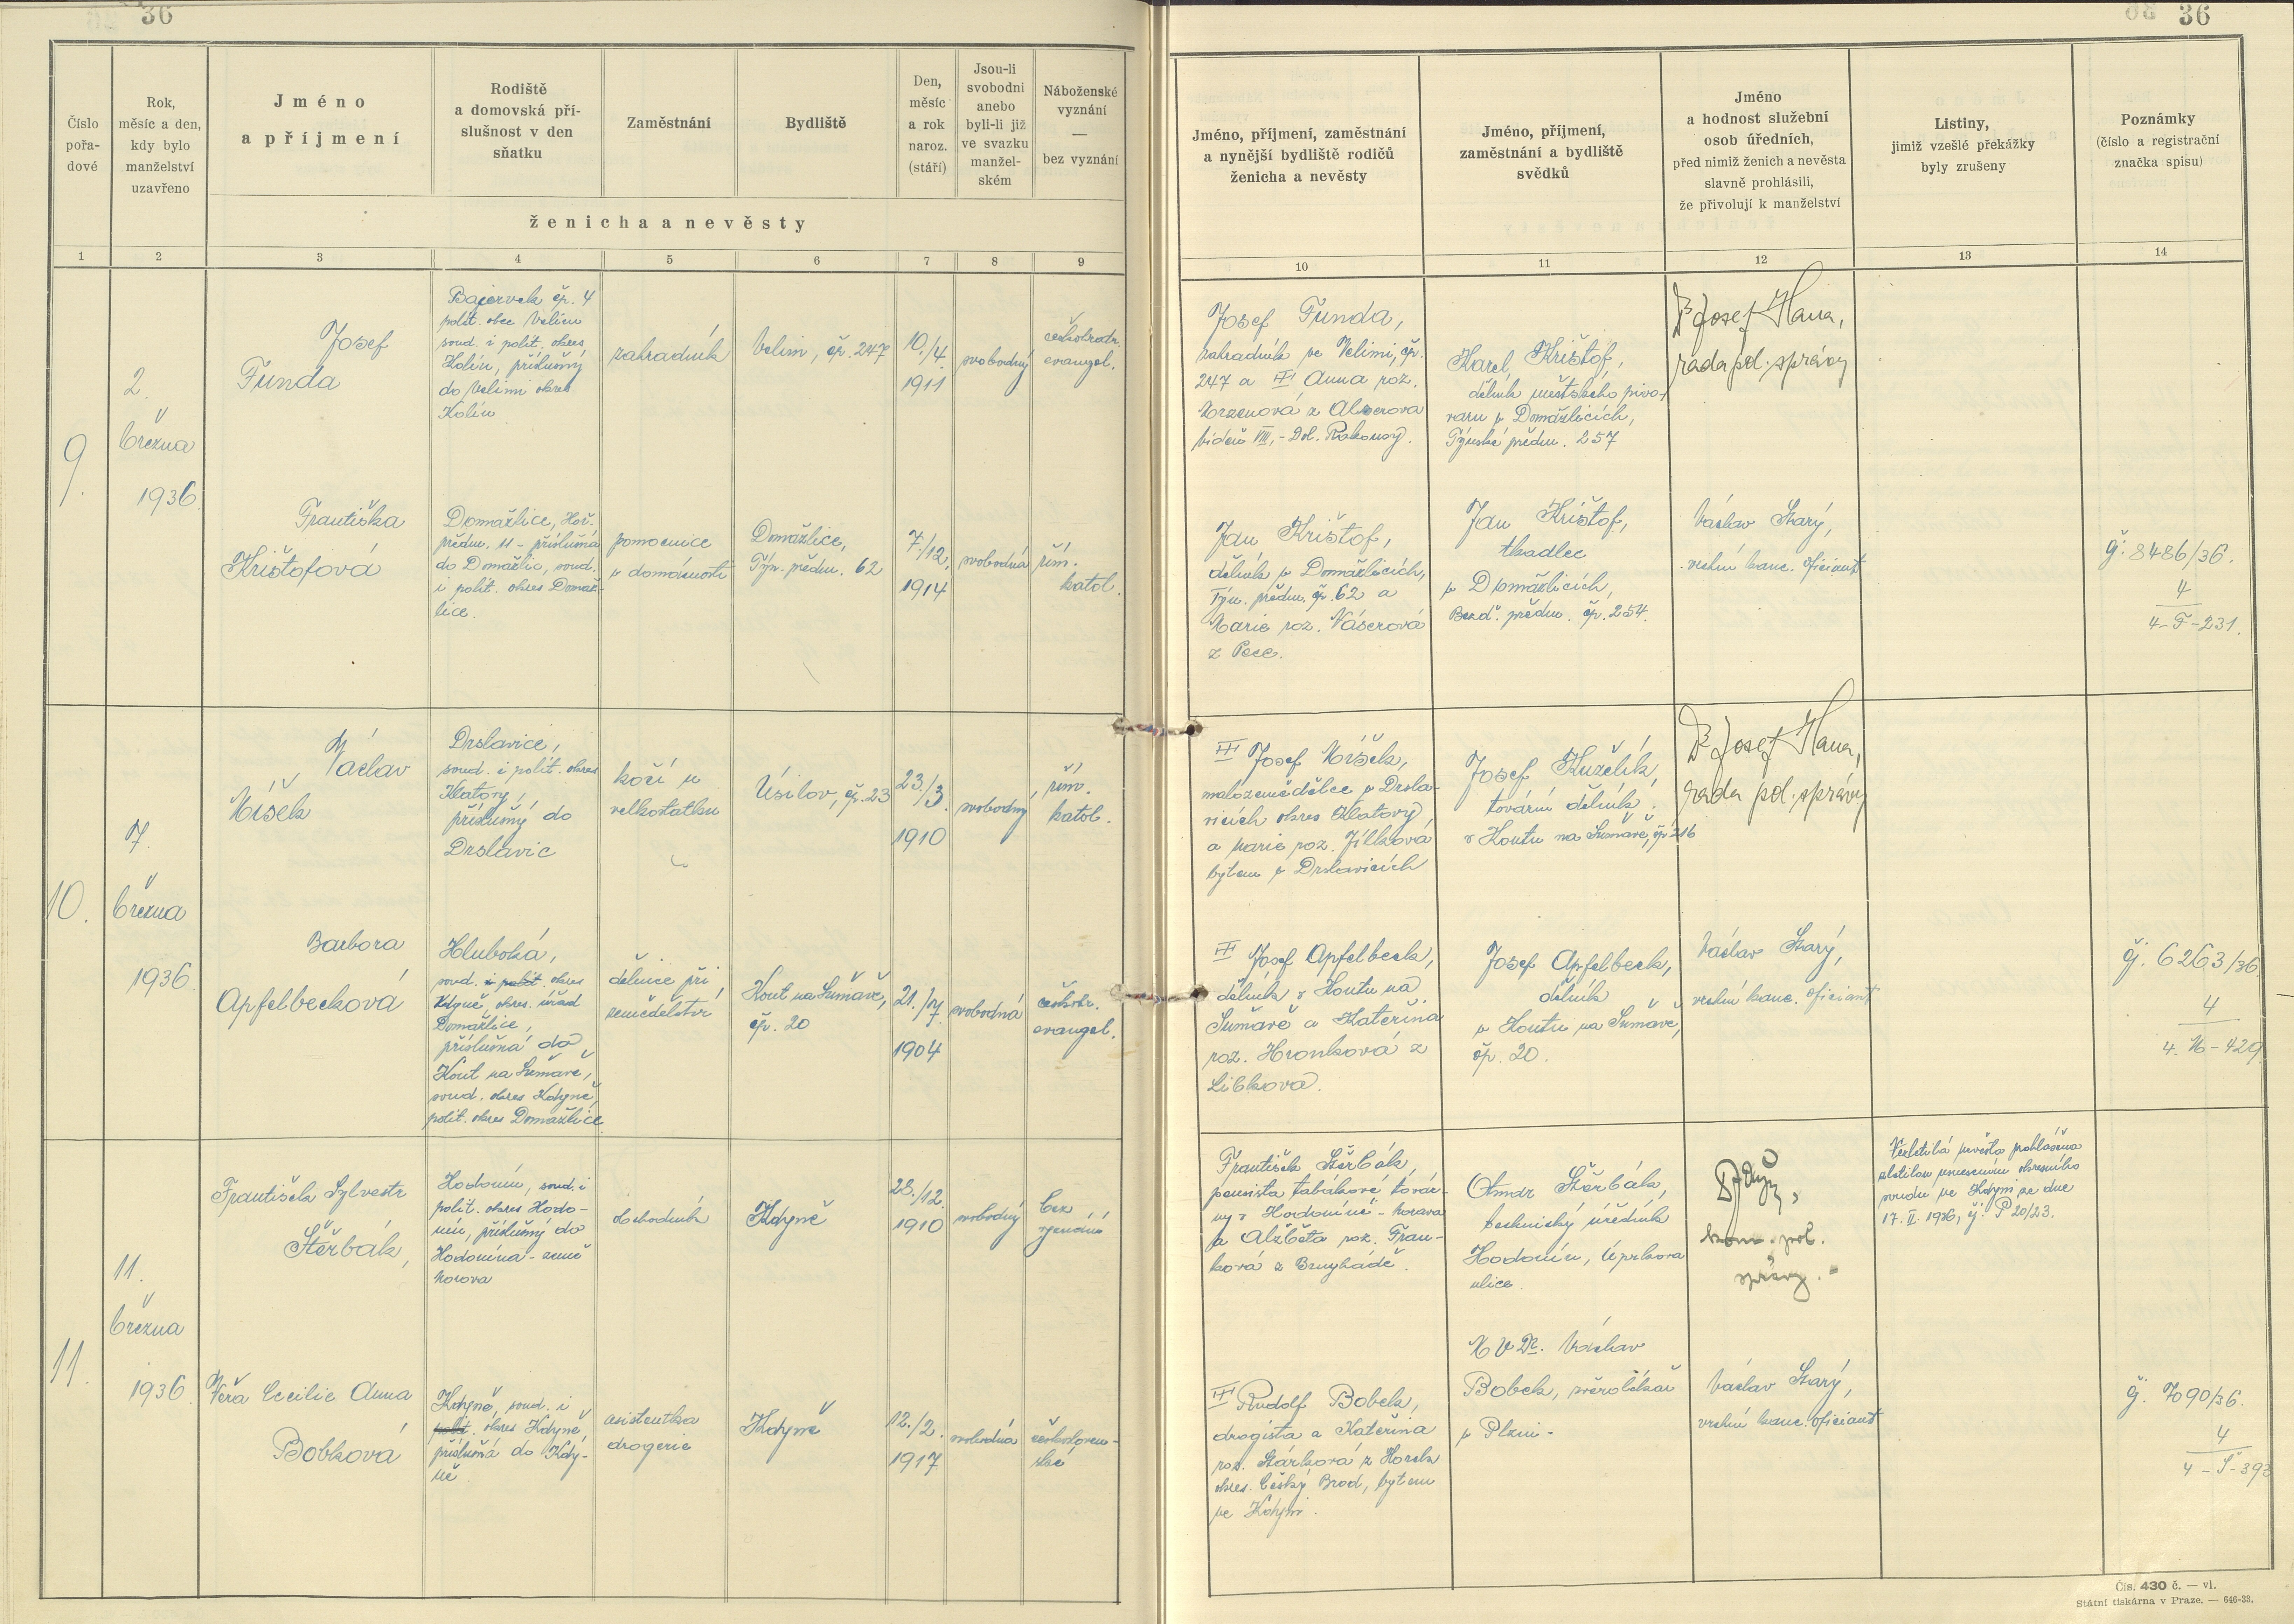 36
36
Číslo pořa-dové
Rok, měsíc a den, kdy bylo manželství uzavřeno
Jméno a příjmení
Rodiště a domovská pří-slušnost v den sňatku
Zaměstnání
Bydliště
Den, měsíc a rok naroz. (stáří)
Jsou-li svobodni anebo byli-li již ve svazku manžel-ském
Náboženské vyznání — bez vyznání
ženicha a nevěsty
Jméno, příjmení, zaměstnání a nynější bydliště rodičů ženicha a nevěsty
Jméno, příjmení, zaměstnání a bydliště svědků
Jméno a hodnost služební osob úředních, před nimiž ženich a nevěsta slavně prohlásili, že přivolují k manželství
Listiny, jimiž vzešlé překážky byly zrušeny
Poznámky (číslo a registrační značka spisu)
1 2 3 4 5 6 7 8 9 10 11 12 13 14
9.
2.
března
1936
Josef
Funda
Bajervek čp. 4
polit. obec Velim
soud. i polit. okres
Kolín, příslušný
do Velimi okres
Kolín
zahradník
Velim, čp. 247
10./4.
1911
svobodný
českobratr.
evangel.
Josef Funda,
zahradník ve Velimi, čp.
247 a Anna roz.
Karel Krištof,
dělník městského pivo-
varu v Domažlicích,
Týnské předm. 257
Dr Josef Hana,
rada pol. správy
Františka
Krištofová
Domažlice, Hoř.
předm. 11 - příslušná
do Domažlic, soud.
i polit. okres Domaž-
lice.
pomocnice
v domácnosti
Domažlice,
Týn. předm. 62
7./12.
1914
svobodná
řím.
katol.
Jan Krištof,
dělník v Domažlicích,
Týn. předm. čp. 62 a
Marie roz. Váserová
z Pece.
Jan Krištof,
tkadlec
v Domažlicích,
Bezd. předm. čp. 254.
Václav Starý,
vrchní kanc. oficiant
čj. 8486/36.
4
4-F-231.
10.
7.
března
1936
Václav
Míšek
Drslavice,
soud. i polit. okres
Klatovy,
příslušný do
Drslavic
kočí u
velkostatku
Úsilov, čp. 23
23./3.
1910
svobodný
řím.
katol.
Josef Míšek,
malozemědělec v Drsla-
vicích okres Klatovy,
a Marie roz. Jílková
bytem v Drslavicích
Josef Kuželík,
tovární dělník
v Koutu na Šumavě, čp. 216
Dr Josef Hana,
rada pol. správy
Barbora
Apfelbecková
Hluboká,
soud. i polit. okres
Kdyně okres. úřad
Domažlice,
příslušná do
Kout na Šumavě,
soud. okres Kdyně,
polit. okres Domažlice
dělnice při
zemědělství
Kout na Šumavě,
čp. 20
21./7.
1904
svobodná
českobr.
evangel.
Josef Apfelbeck,
dělník v Koutu na
Šumavě a Kateřina
roz. Hronková z
Libkova.
Josef Apfelbeck,
dělník
v Koutu na Šumavě,
čp. 20.
Václav Starý,
vrchní kanc. oficiant
čj. 6263/36
4
4-M-429
11.
11.
března
1936
František Sylvestr
Štěrbák,
Hodonín, soud. i
polit. okres Hodo-
nín, příslušný do
Hodonína - země
Morava
obchodník
Kdyně
28./12.
1910
svobodný
bez
vyznání
František Štěrbák,
pensista tabákové továr-
ny v Hodoníně - Morava
a Alžběta roz. Fran-
ková z
Otmar Štěrbák,
technický úředník
Hodonín, Úprkova
ulice.
kom. pol.
správy.
Nezletilá nevěsta prohlášena
zletilou usnesením okresního
soudu ve Kdyni ze dne
17. II. 1936, čj. P 20/23.
Věra Cecilie Anna
Bobková
Kdyně, soud. i
polit. okres Kdyně,
příslušná do Kdy-
ně
asistentka
drogerie
Kdyně
12./2.
1917
svobodná
českosloven-
ské
Rudolf Bobek,
drogista a Kateřina
roz. Stárková z
okres. Český Brod, bytem
ve Kdyni.
MVDr. Václav
Bobek, zvěrolékař
v Plzni -
Václav Starý,
vrchní kanc. oficiant
čj. 7090/36.
4
4-Š-393
Čís. 430 č. — vl.
Státní tiskárna v Praze. — 646-33.